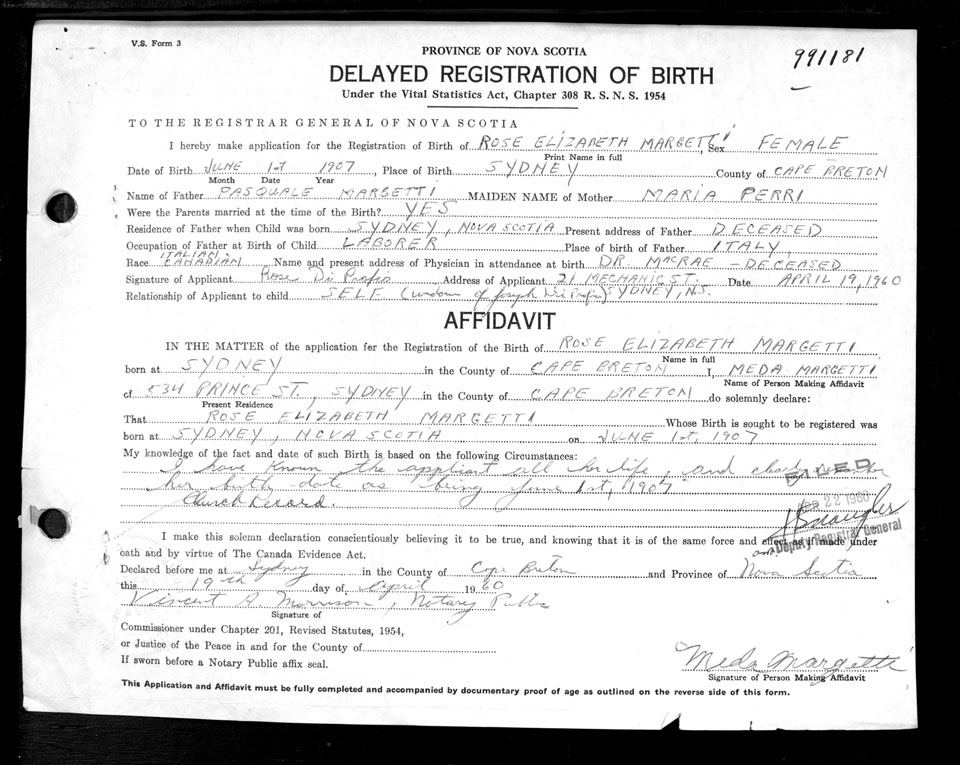 V.S. Form 3
991181
PROVINCE OF NOVA SCOTIA
DELAYED REGISTRATION OF BIRTH
Under the Vital Statistics Act, Chapter 308 R. S. N. S. 1954
TO THE REGISTRAR GENERAL OF NOVA SCOTIA
I hereby make application for the Registration of Birth of ROSE ELIZABETH MARGETTI Sex FEMALE
Print Name in full
Date of Birth JUNE 1st 1907, Place of Birth SYDNEY County of CAPE BRETON
Month Date Year
Name of Father PASQUALE MARGETTI MAIDEN NAME of Mother MARIA PERRI
Were the Parents married at the time of the Birth? YES
Residence of Father when Child was born SYDNEY, NOVA SCOTIA Present address of Father DECEASED
Occupation of Father at Birth of Child LABORER Place of birth of Father ITALY
ITALIAN
Race CANADIAN Name and present address of Physician in attendance at birth DR. MACRAE - DECEASED
Signature of Applicant Rose Di Profio Address of Applicant 21 MECHANIC ST. Date APRIL 19, 1960
Relationship of Applicant to child SELF (widow of Joseph Di Profio) SYDNEY, N.S.
AFFIDAVIT
IN THE MATTER of the application for the Registration of the Birth of ROSE ELIZABETH MARGETTI
Name in full
born at SYDNEY in the County of CAPE BRETON I, MEDA MARGETTI
Name of Person Making Affidavit
of 534 PRINCE ST., SYDNEY in the County of CAPE BRETON do solemnly declare:
Present Residence
That ROSE ELIZABETH MARGETTI Whose Birth is sought to be registered was
born at SYDNEY, NOVA SCOTIA on JUNE 1st, 1907
My knowledge of the fact and date of such Birth is based on the following Circumstances:
I have known the applicant all her life, and
FILED
her birth date as being June 1st, 1907
Church Record.
22 1960
Deputy Registrar General
I make this solemn declaration conscientiously believing it to be true, and knowing that it is of the same force and effect as if made under
oath and by virtue of The Canada Evidence Act.
Declared before me at Sydney in the County of Cape Breton and Province of Nova Scotia
this 19th day of April 1960
Vincent A. Morrison, Notary Public
Signature of
Commissioner under Chapter 201, Revised Statutes, 1954,
or Justice of the Peace in and for the County of
If sworn before a Notary Public affix seal.
Meda Margetti
Signature of Person Making Affidavit
This Application and Affidavit must be fully completed and accompanied by documentary proof of age as outlined on the reverse side of this form.